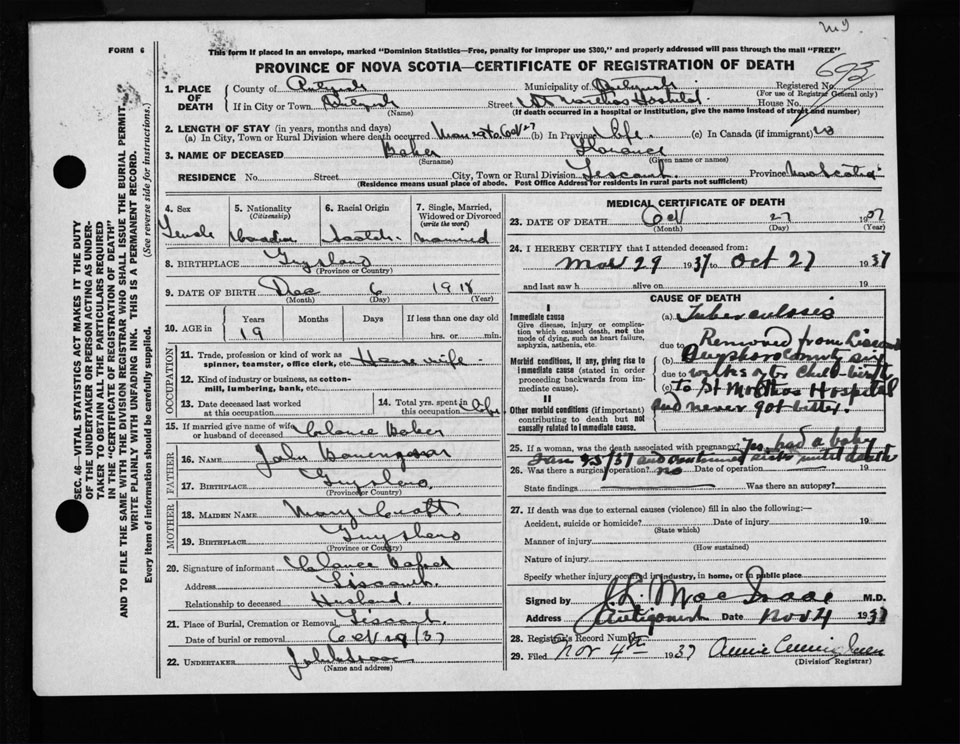 FORM 6
This form if placed in an envelope, marked "Dominion Statistics—Free, penalty for improper use $300," and properly addressed will pass through the mail "FREE"
PROVINCE OF NOVA SCOTIA—CERTIFICATE OF REGISTRATION OF DEATH
693
1. PLACE OF DEATH
County of
Municipality of
Registered No.
(For use of Registrar General only)
If in City or Town
(Name)
Street St Marthas Hospital
House No.
(If death occurred in a hospital or institution, give the name instead of street and number)
2. LENGTH OF STAY (in years, months and days)
(a) In City, Town or Rural Division where death occurred Mar 29 to Oct 27 (b) In Province Life. (c) In Canada (if immigrant)
3. NAME OF DECEASED Baker Florance
(Surname) (Given name or names)
RESIDENCE No. Street City, Town or Rural Division Liscomb. Province Nova Scotia
(Residence means usual place of abode. Post Office Address for residents in rural parts not sufficient)
4. Sex
Female
5. Nationality
(Citizenship)
6. Racial Origin
Scotch
7. Single, Married, Widowed or Divorced
(write the word)
Married
8. BIRTHPLACE Guysboro
(Province or Country)
9. DATE OF BIRTH Dec 6 1918
(Month) (Day) (Year)
10. AGE in
Years Months Days If less than one day old
19
hrs. or min.
OCCUPATION
11. Trade, profession or kind of work as spinner, teamster, office clerk, etc. House wife
12. Kind of industry or business, as cotton-mill, lumbering, bank, etc.
13. Date deceased last worked at this occupation
14. Total yrs. spent in this occupation Life
15. If married give name of wife or husband of deceased Clarance Baker
FATHER
16. NAME John
17. BIRTHPLACE Guysboro
(Province or Country)
MOTHER
18. MAIDEN NAME Mary
19. BIRTHPLACE Guysboro
(Province or Country)
20. Signature of informant Clarance Baker
Address Liscomb.
Relationship to deceased Husband.
21. Place of Burial, Cremation or Removal Liscomb.
Date of burial or removal Oct 29/37
22. UNDERTAKER
(Name and address)
MEDICAL CERTIFICATE OF DEATH
23. DATE OF DEATH Oct 27 1937
(Month) (Day) (Year)
24. I HEREBY CERTIFY that I attended deceased from:
Mar 29 1937 to Oct 27 1937
and last saw h alive on 19
CAUSE OF DEATH
I
Immediate cause
Give disease, injury or complication which caused death, not the mode of dying, such as heart failure, asphyxia, asthenia, etc.
Morbid conditions, if any, giving rise to immediate cause (stated in order proceeding backwards from immediate cause).
II
Other morbid conditions (if important) contributing to death but not causally related to immediate cause.
(a) Tuberculosis
due to Removed from Liscomb
(b) Guysboro County six
due to wilks after child-birth
(c) to St Marthas Hospital
and never got better.
25. If a woman, was the death associated with pregnancy? Yes, had a baby
Jan 25/37 and continued sick until death
26. Was there a surgical operation? no Date of operation
State findings Was there an autopsy?
27. If death was due to external causes (violence) fill in also the following:—
Accident, suicide or homicide? Date of injury 19
(State which)
Manner of injury
(How sustained)
Nature of injury
Specify whether injury occurred in industry, in home, or in public place
Signed by MacIsaac M.D.
Address Antigonish Date Nov 4 1937
28. Registrar's Record Number
29. Filed Nov 4th 1937 Annie
(Division Registrar)
SEC. 46—VITAL STATISTICS ACT MAKES IT THE DUTY
OF THE UNDERTAKER OR PERSON ACTING AS UNDER-
TAKER TO OBTAIN ALL THE PARTICULARS REQUIRED
IN THE "CERTIFICATE OF REGISTRATION OF DEATH"
AND TO FILE THE SAME WITH THE DIVISION REGISTRAR WHO SHALL ISSUE THE BURIAL PERMIT.
WRITE PLAINLY WITH UNFADING INK. THIS IS A PERMANENT RECORD.
Every item of information should be carefully supplied. (See reverse side for instructions.)